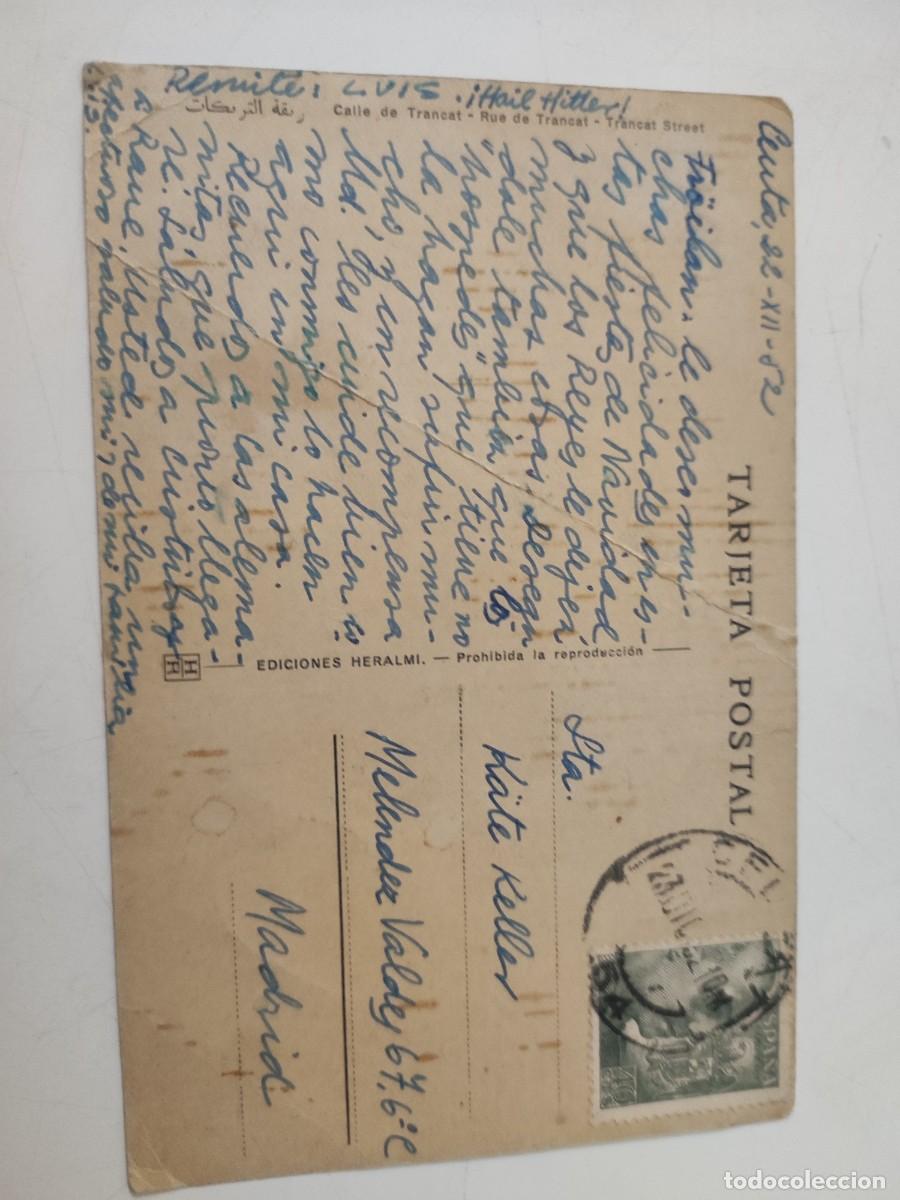 Remite: LUIS. ¡Hail Hitler!
زنقة التريكات
Calle de Trancat - Rue de Trancat - Trancat Street
Ceuta, 22-XII-52
Fröilan: le deseo mu-
chas felicidades en es-
tas fiestas de Navidad
y que los Reyes le dejen
muchas cosas. Deseqn
dole tambien que los
"nonedes" que tiene no
la hagan sufrir mu-
cho, y en recompensa
Ud. les cuide bien co
mo conmigo lo hacen
aqui en mi casa.
Recuerdos a las alema-
nitas, que pronto llega-
ré. Saludos a Cristobal y
a Rane. Usted reciba un
afectuoso saludo mio y de mi familia
Luis.
TARJETA POSTAL
EDICIONES HERALMI. — Prohibida la reproducción
H
R
Sta.
Käte Keller
Melendez Valdes 67, 6º C
Madrid
ESPAÑA
todocoleccion